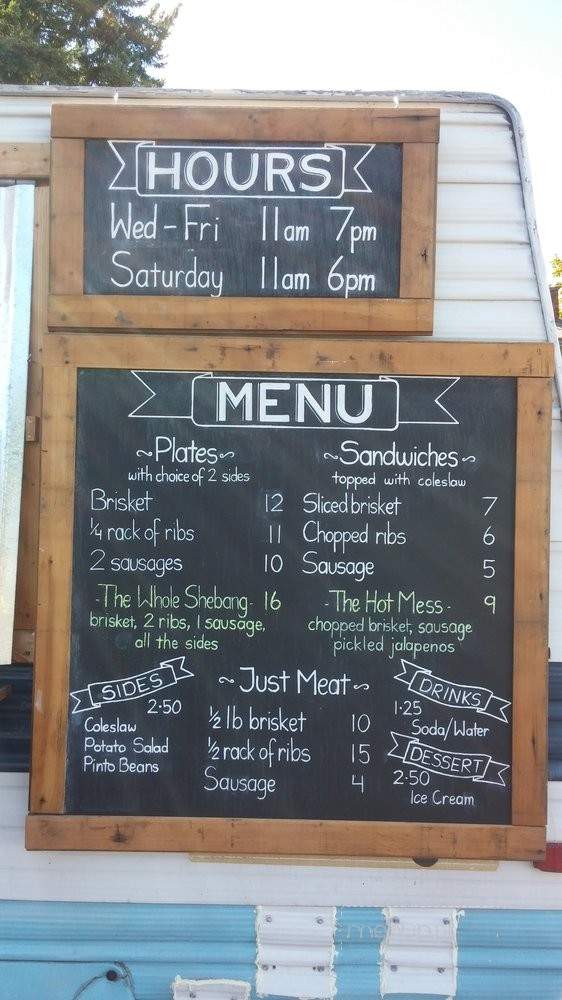 HOURS
Wed - Fri 11am 7pm
Saturday 11am 6pm
MENU
~Plates~
with choice of 2 sides
Brisket 12
1/4 rack of ribs 11
2 sausages 10
-The Whole Shebang- 16
brisket, 2 ribs, 1 sausage,
all the sides
~Sandwiches~
topped with coleslaw
Sliced brisket 7
Chopped ribs 6
Sausage 5
-The Hot Mess- 9
chopped brisket, sausage
pickled jalapenos
SIDES
2.50
Coleslaw
Potato Salad
Pinto Beans
~Just Meat~
1/2 lb brisket 10
1/2 rack of ribs 15
Sausage 4
DRINKS
1.25
Soda/Water
DESSERT
2.50
Ice Cream